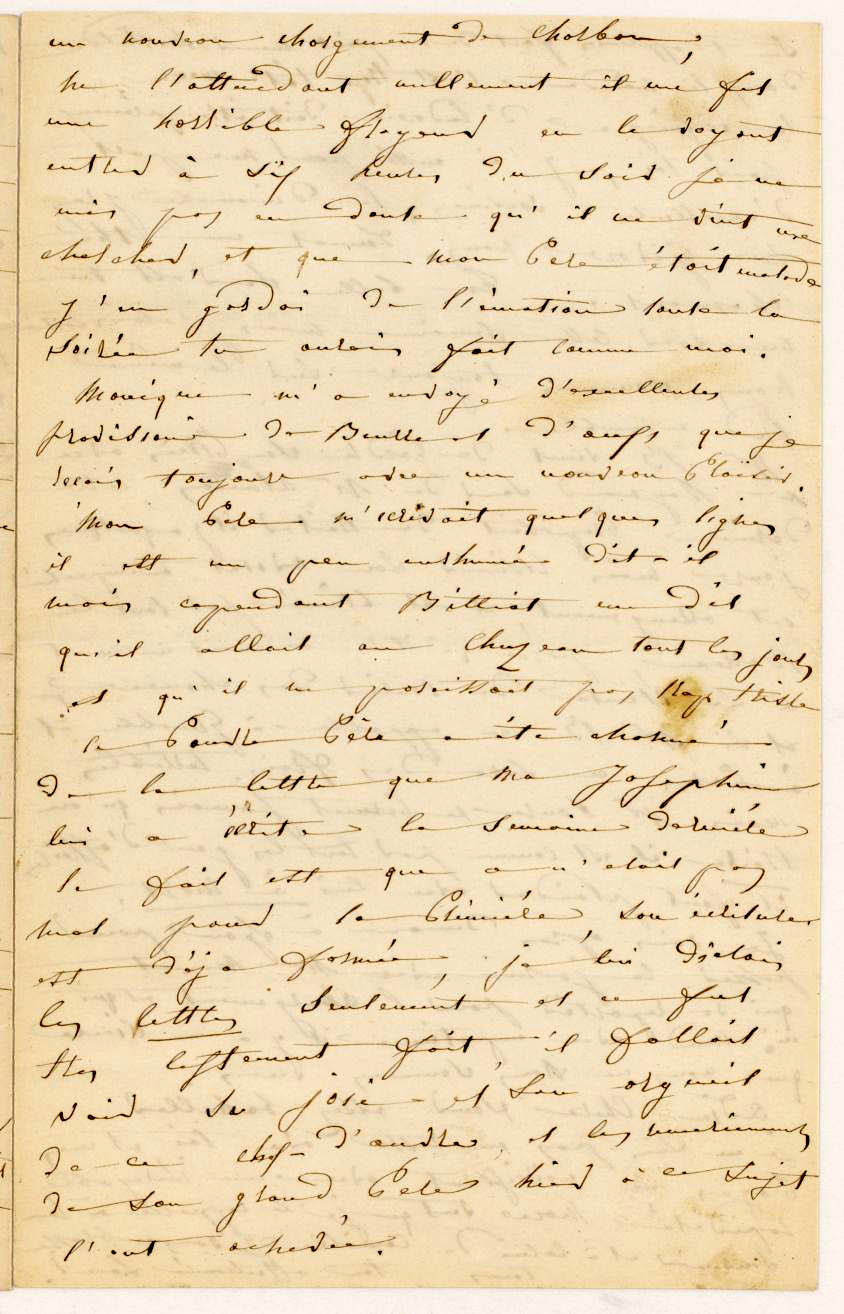 un nouveau chargement de charbon,
ne l'attendant nullement il me fit
une horrible frayeur en le voyant
entrer à six heures du soir je ne
mis pas en doute qu'il ne vint me
chercher, et que mon Pere était malade
j'en gardai de l'émotion toute la
soirée tu aurais fait comme moi.
Monique m'a envoyé d'excellentes
provisions de Beurre et d'oeufs que je
recois toujours avec un nouveau Plaisir.
Mon Pere m'ecrivait quelques lignes
il est un peu enrhumé dit-il
mais cependant Billiat me dit
qu'il allait au Chuzeau tout les jours
et qu'il ne paraissait pas trop triste
le Pauvre Père a été charmé
de la lettre que ma Josephine
lui a écrite la semaine dernière
le fait est que ce n'etait pas
mal pour la Première, son écriture
est déja formée, je lui dictais
les lettres seulement et ce fut
tres lestement fait, il fallait
voir sa joie et son orgueil
de ce chef-d'œuvre, et les remerciments
de son grand Pere hier à ce sujet
l'ont achevée.